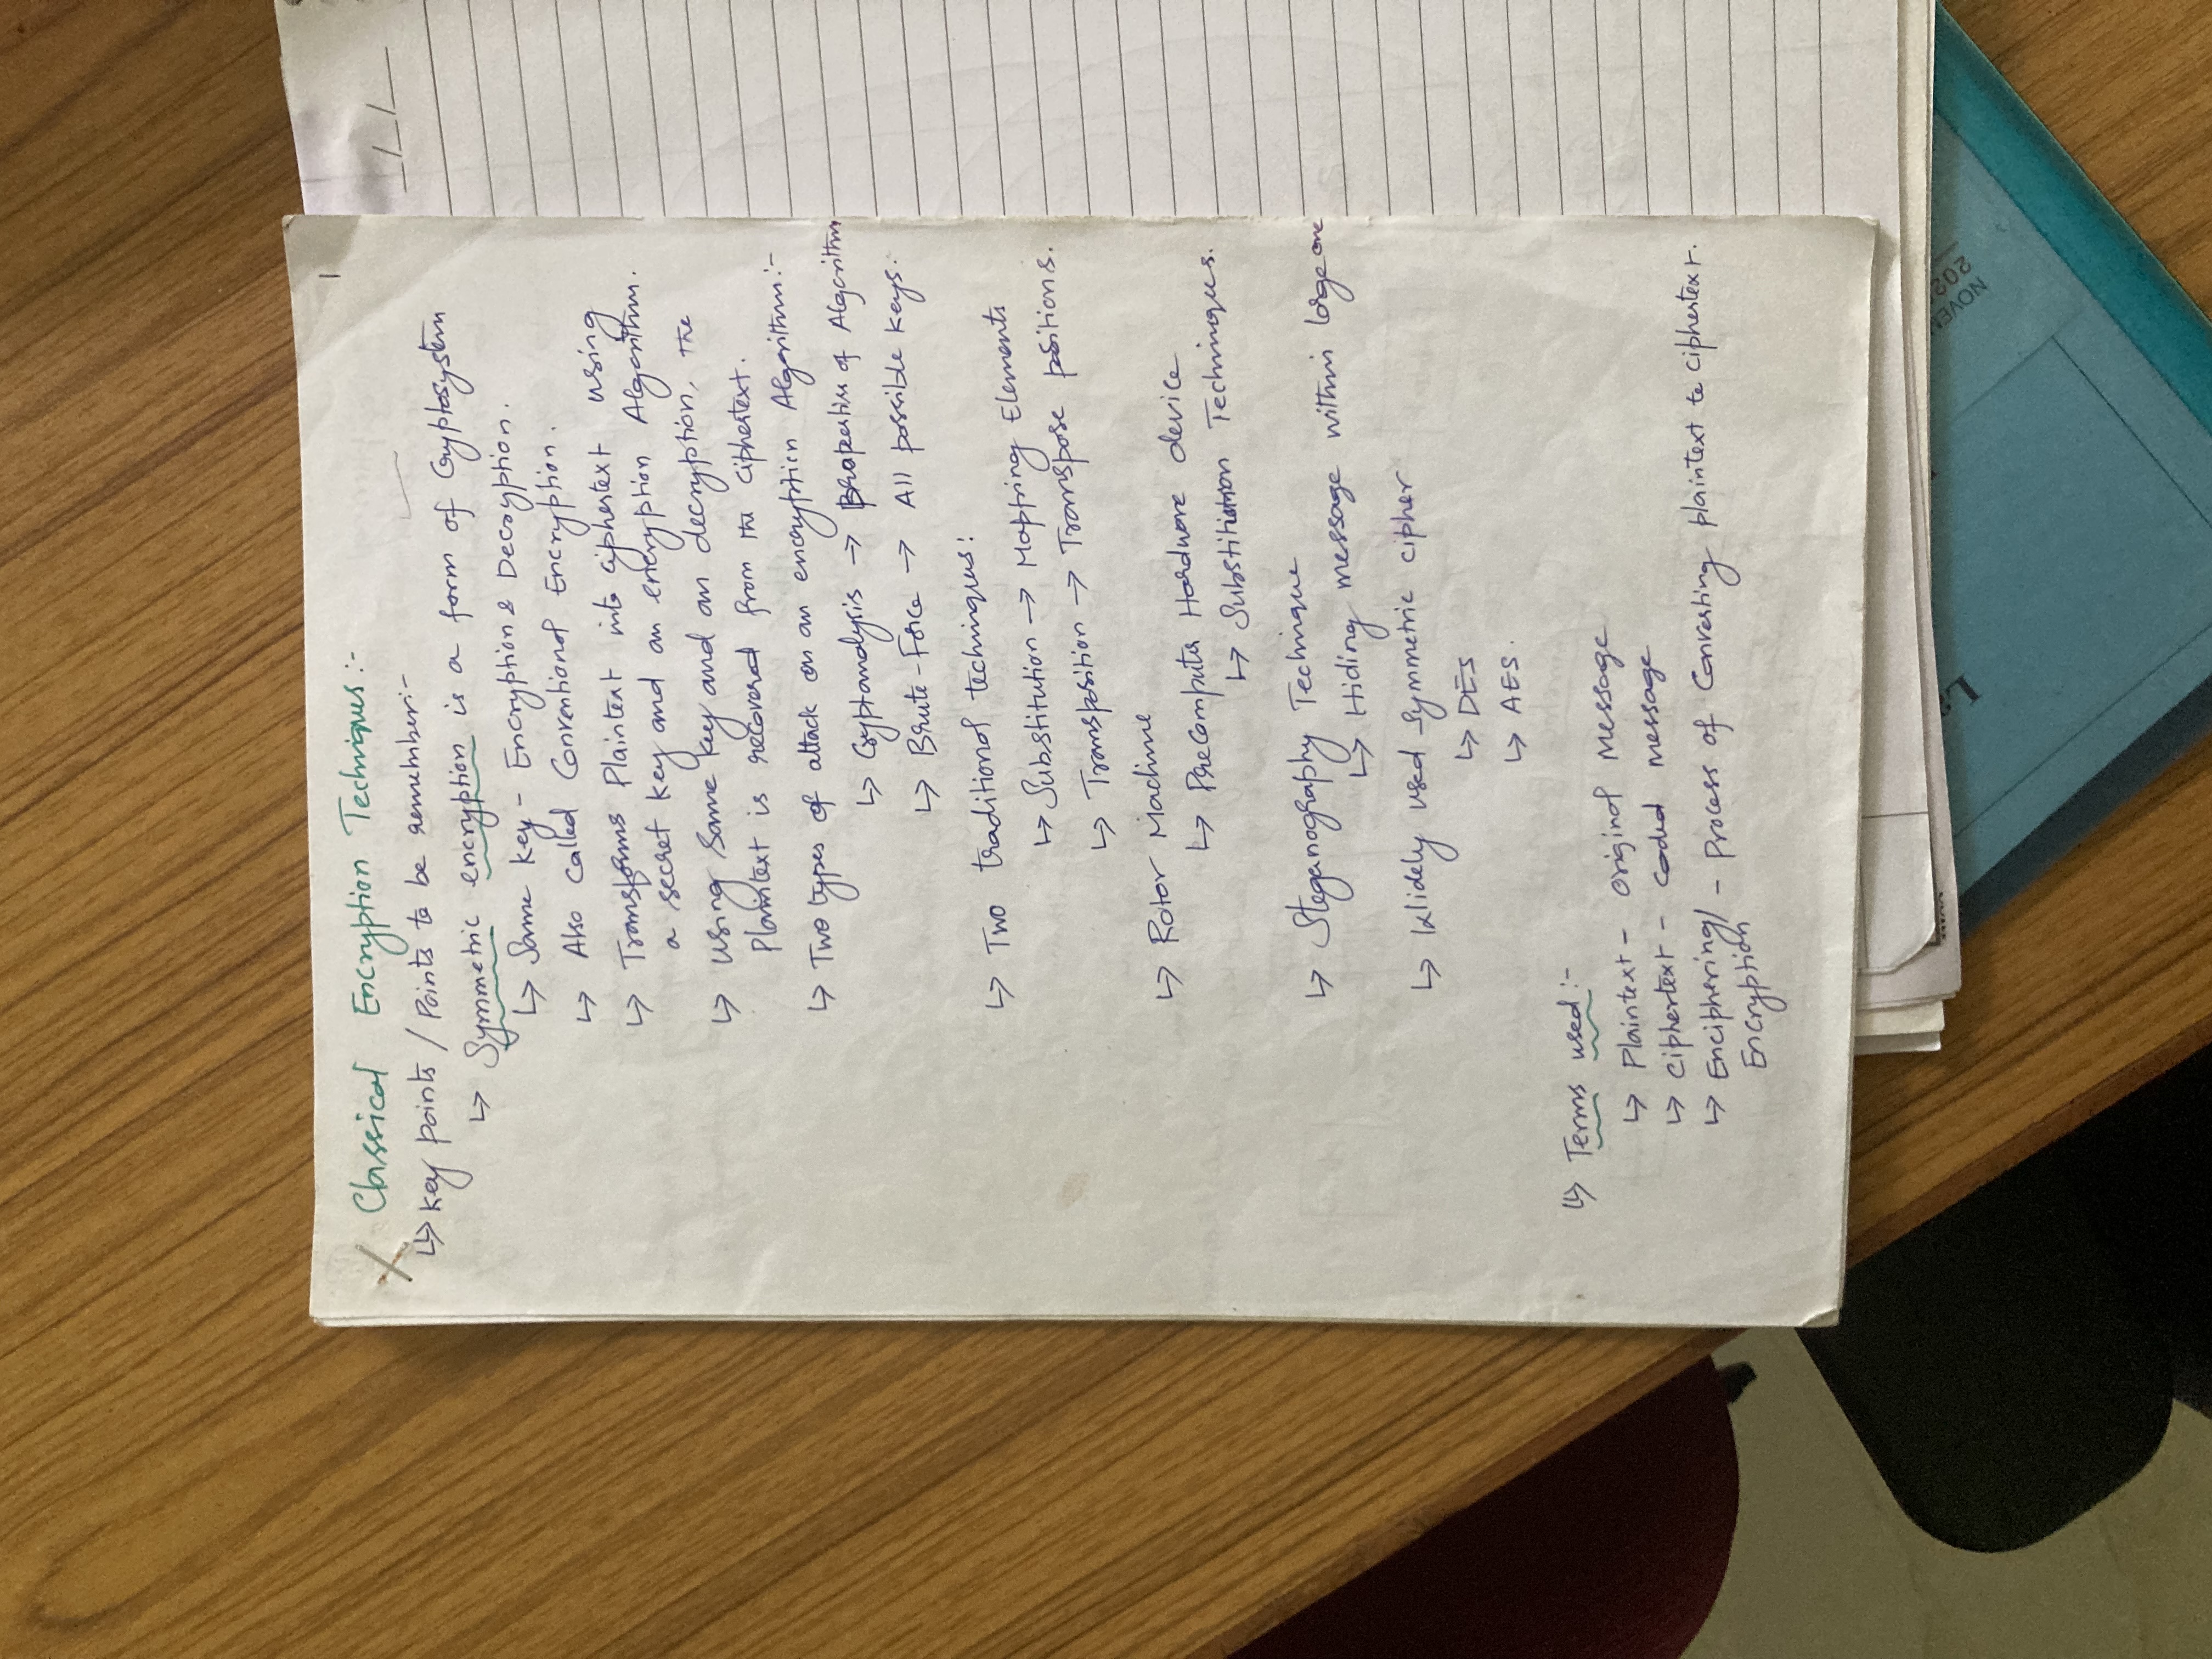 1
Classical Encryption Techniques:-
↳ Key points / Points to be remember:-
↳ Symmetric encryption is a form of Cryptosystem
↳ Same key - Encryption & Decryption.
↳ Also called Conventional Encryption.
↳ Transforms Plaintext into ciphertext using
a secret key and an encryption Algorithm.
↳ using same key and an decryption, the
Plaintext is recovered from the ciphertext.
↳ Two types of attack on an encryption Algorithm:-
↳ Cryptanalysis → Properties of Algorithm
↳ Brute-Force → All possible keys.
↳ Two traditional techniques:
↳ Substitution → Mapping Elements
↳ Transposition → Transpose positions.
↳ Rotor Machine
↳ PreComputer Hardware device
↳ Substitution Techniques.
↳ Steganography Technique
↳ Hiding message within large one
↳ Widely used Symmetric cipher
↳ DES
↳ AES.
↳ Terms used:-
↳ Plaintext - Original Message
↳ Ciphertext - Coded Message
↳ Enciphering/ - Process of Converting plaintext to ciphertext.
Encryption